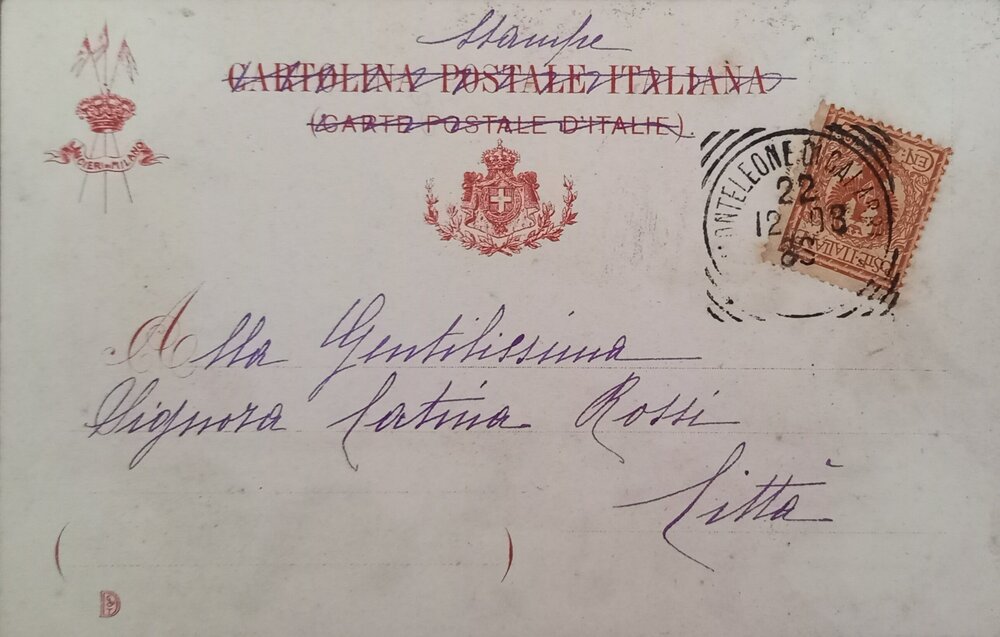 Stampe
CARTOLINA POSTALE ITALIANA
(CARTE POSTALE D'ITALIE)
MILANO
MONTELEONE DI CALABRIA
22
12 03
CEN
POSTE ITALIANE
Alla Gentilissima
Signora Catina Rossi
Città